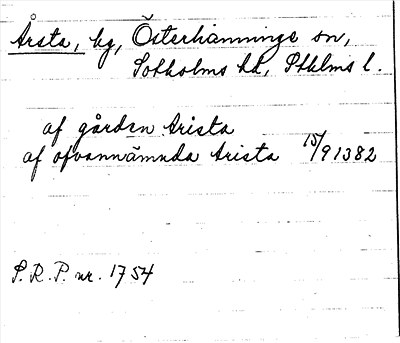 Årsta, hg, Österhanninge sn,
Sotholms hd, Sthlms l.
af gården Arista
af ofvannämnda Arista 15/9 1382
S.R.P. nr. 1754